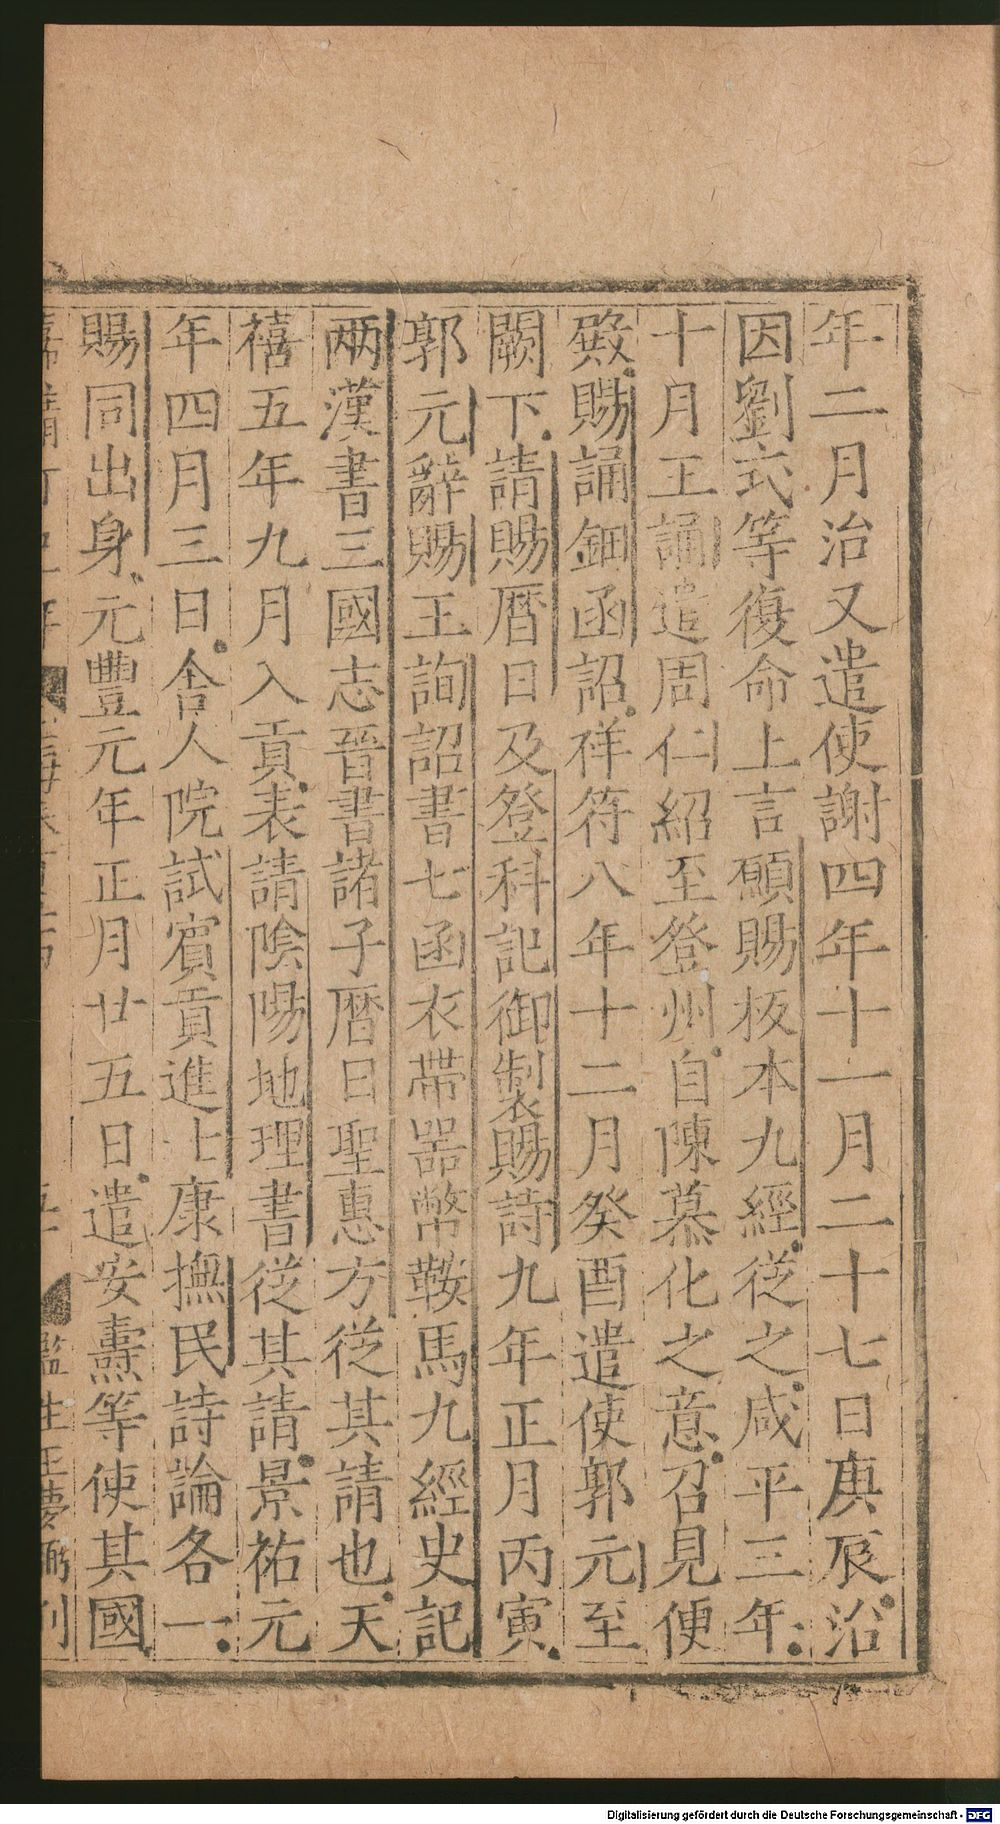 年二月治又遣使謝四年十一月二十七日庚辰治
因劉式等復命上言願賜板本九經從之咸平三年
十月王誦遣周仁紹至登州自陳慕化之意召見便
殿賜誦鈿函詔祥符八年十二月癸酉遣使郭元至
闕下請賜曆日及登科記御製賜詩九年正月丙寅
郭元辭賜王詢詔書七函衣帶器幣鞍馬九經史記
兩漢書三國志晉書諸子曆日聖惠方從其請也天
禧五年九月入貢表請陰陽地理書從其請景祐元
年四月三日舍人院試賓貢進士康撫民詩論各一
賜同出身元豐元年正月廿五日遣安燾等使其國
監生王夢弼刊
Digitalisierung gefördert durch die Deutsche Forschungsgemeinschaft - DFG